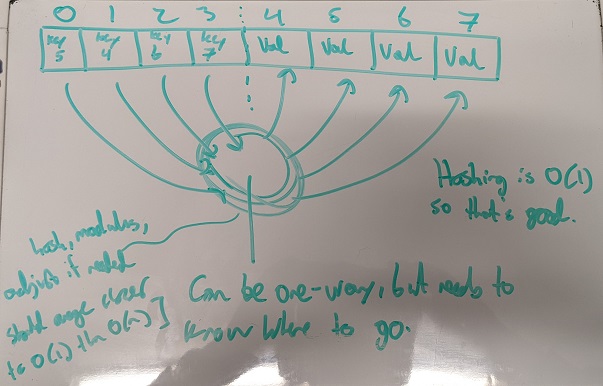 0 1 2 3 4 5 6 7
key 5 key 4 key 6 key 7 Val Val Val Val
Hashing is O(1)
so that's good.
hash, modulus,
adjust if needed
should average closer
to O(1) than O(n)]
Can be one-way, but needs to
know where to go.